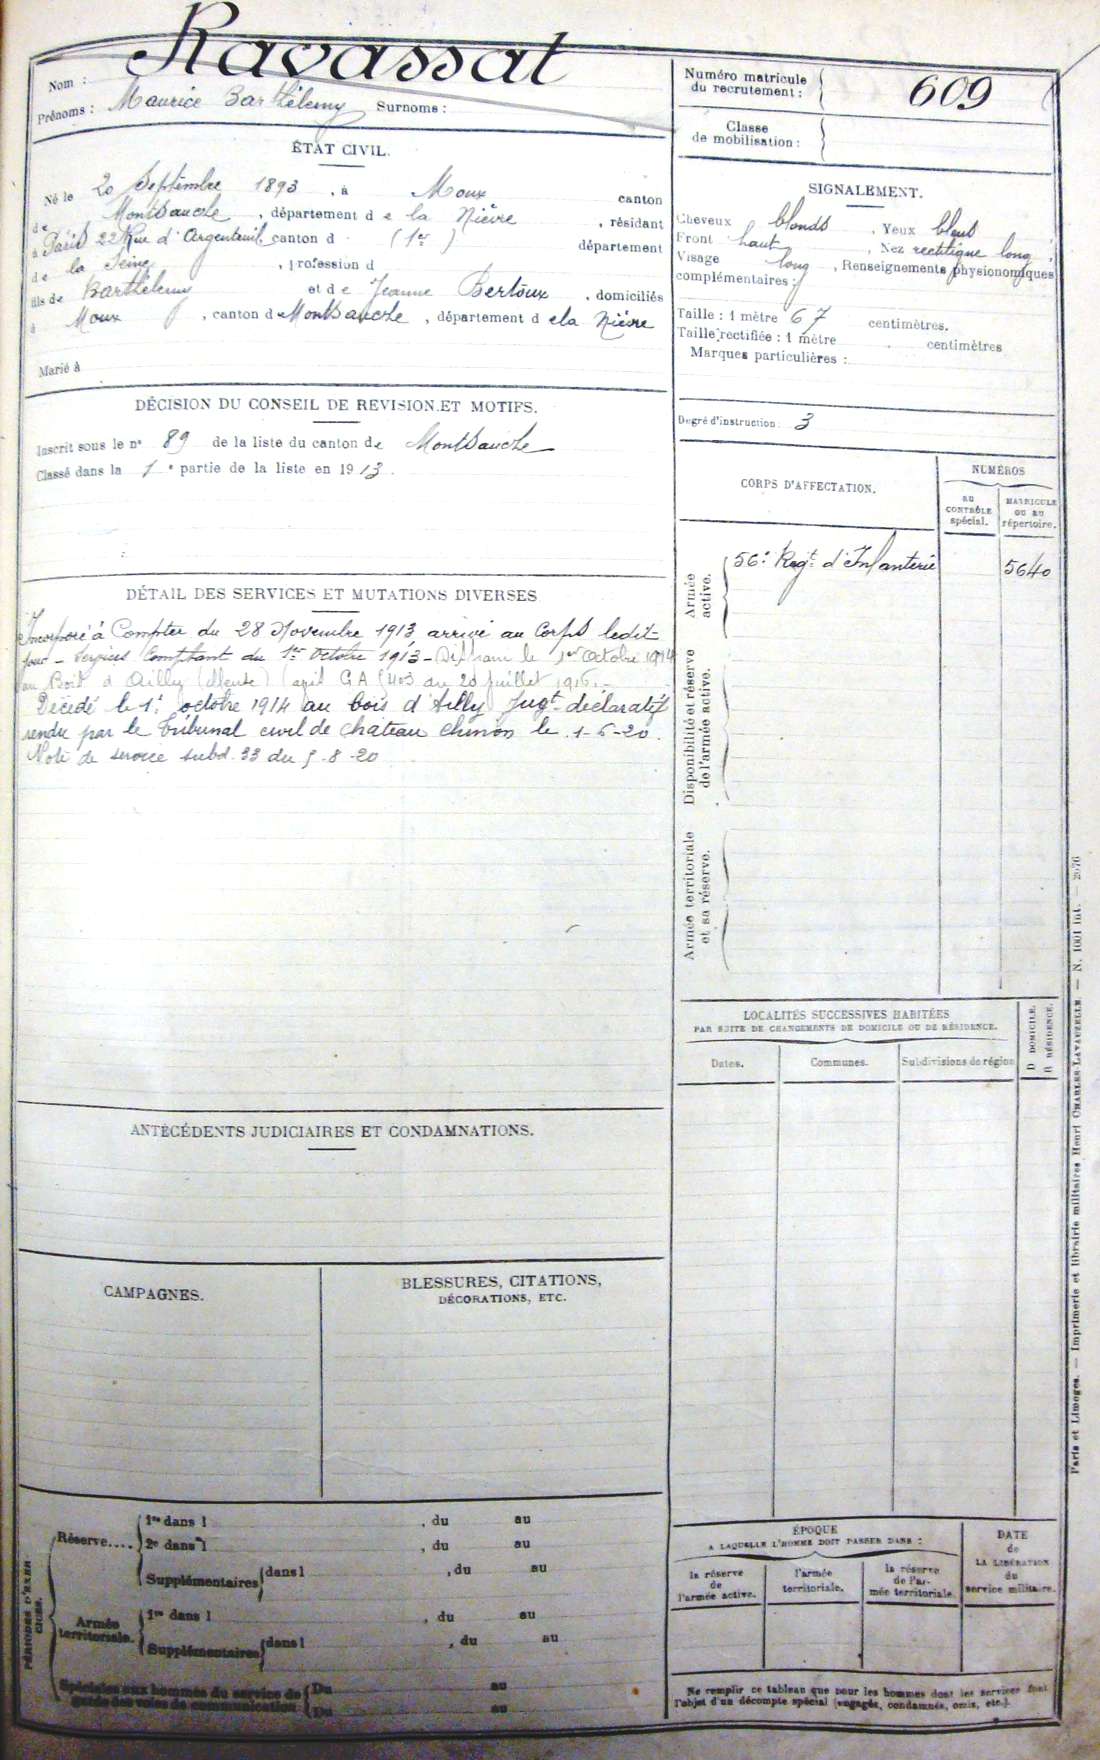 Nom : Ravassat
Prénoms : Maurice Barthélemy Surnoms :
Numéro matricule
du recrutement : 609
Classe
de mobilisation :
ÉTAT CIVIL.
Né le 20 Septembre 1893, à Moux canton
de Montsauche, département de la Nièvre, résidant
à Paris 22 Rue d'Argenteuil canton d (1er) département
de la Seine, profession d
fils de Barthélemy et de Jeanne Bertoux, domiciliés
à Moux, canton de Montsauche, département de la Nièvre
Marié à
SIGNALEMENT.
Cheveux blonds, Yeux bleus
Front haut, Nez rectiligne long,
Visage long, Renseignements physionomiques
complémentaires :
Taille : 1 mètre 67 centimètres.
Taille rectifiée : 1 mètre centimètres
Marques particulières :
Degré d'instruction 3
DÉCISION DU CONSEIL DE REVISION ET MOTIFS.
Inscrit sous le n° 89 de la liste du canton de Montsauche
Classé dans la 1e partie de la liste en 1913.
CORPS D'AFFECTATION.
NUMÉROS
AU
CONTRÔLE
spécial.
MATRICULE
OU AU
répertoire.
Armée
active.
56e Regt d'Infanterie 5640
Disponibilité et réserve
de l'armée active.
Armée territoriale
et sa réserve.
DÉTAIL DES SERVICES ET MUTATIONS DIVERSES
Incorporé à Compter du 28 Novembre 1913, arrivé au Corps ledit
jour - Services Comptant du 1er Octobre 1913 - Disparu le 1er Octobre 1914
au Bois d'Ailly (Meuse) ( du 20 juillet 1916.-
Décédé le 1er octobre 1914 au bois d'Ailly Jugt déclaratif
rendu par le Tribunal civil de Chateau Chinon le 1-6-20.
Note de service subd. 33 du 5-8-20
LOCALITÉS SUCCESSIVES HABITÉES
PAR SUITE DE CHANGEMENTS DE DOMICILE OU DE RÉSIDENCE.
D DOMICILE.
R RÉSIDENCE.
Dates. Communes. Subdivisions de région
ANTÉCÉDENTS JUDICIAIRES ET CONDAMNATIONS.
CAMPAGNES.
BLESSURES, CITATIONS,
DÉCORATIONS, ETC.
PÉRIODES D'EXER
CICES.
Réserve.... 1re dans l, du au
2e dans l, du au
Supplémentaires dans l, du au
Armée
territoriale. 1re dans l, du au
Supplémentaires dans l, du au
Spéciales aux hommes du service de
garde des voies de communication Du au
Du au
ÉPOQUE
A LAQUELLE L'HOMME DOIT PASSER DANS :
la réserve
de
l'armée active.
l'armée
territoriale.
la réserve
de l'ar-
mée territoriale.
DATE
de
LA LIBÉRATION
du
service militaire.
Ne remplir ce tableau que pour les hommes dont les services font
l'objet d'un décompte spécial (engagés, condamnés, omis, etc.).
Paris et Limoges. — Imprimerie et librairie militaires Henri CHARLES-LAVAUZELLE. — N. 1001 int. — 2076